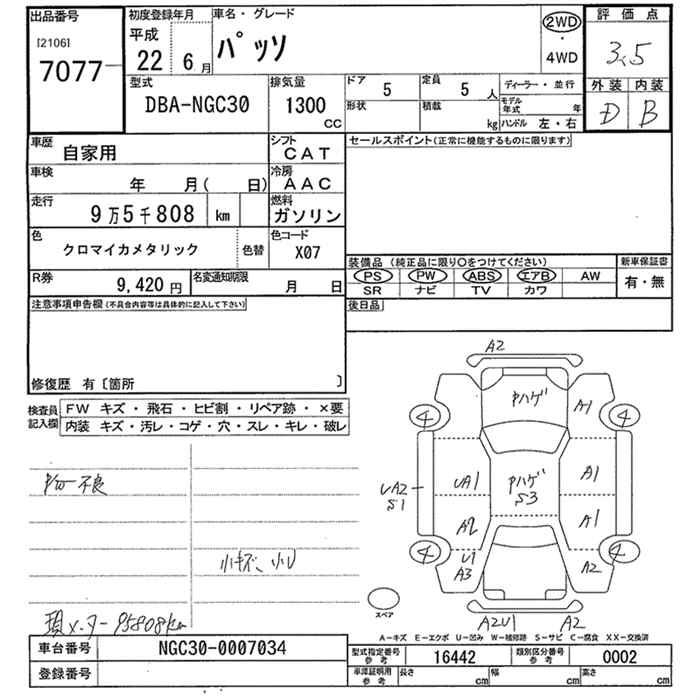 出品番号
[2106]
7077
初度登録年月
平成
22 6月
車名・グレード
パッソ
2WD
・
4WD
評価点
3.5
外装 内装
D B
型式
DBA-NGC30
排気量
1300
CC
ドア 5
定員 5人
形状
積載 kg
ディーラー・並行
モデル年式 年
ハンドル 左・右
車歴
自家用
シフト
CAT
セールスポイント(正常に機能するものに限ります)
車検
年 月( 日)
冷房
AAC
走行
9万5千808 km
燃料
ガソリン
色
クロマイカメタリック
色替
色コード
X07
装備品 (純正品に限り○をつけてください)
新車保証書
PS PW ABS エアB AW
有・無
SR ナビ TV カワ
R券
9,420円
名変通知期限
月 日
後日品
注意事項申告欄(不具合内容等は具体的に記入して下さい)
修復歴 有〔箇所 〕
検査員記入欄
FW キズ・飛石・ヒビ割・リペア跡・×要
内装 キズ・汚レ・コゲ・穴・スレ・キレ・破レ
P/W 不良
小キズ、小U
現メーター95808km
A2
Pハゲ
A1
4 4
UA1
Pハゲ
S3
A1
UA2
S1
A2
A1
4 4
U1
A3
A2
A2U1 A2
スペア
A-キズ E-エクボ U-凹み W-補修跡 S-サビ C-腐食 XX-交換済
車台番号
NGC30-0007034
型式指定番号
参考
16442
類別区分番号
参考
0002
登録番号
車庫証明用
参考
長さ cm
幅 cm
高さ cm